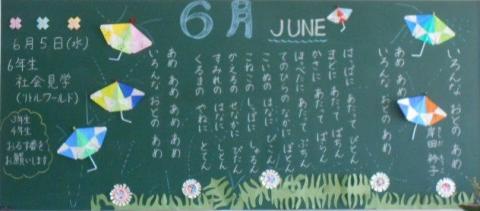 6月
JUNE
6月5日(水)
6年生
社会見学
(リトルワールド)
3年生
4年生
おるす番を
お願いします
岸田 衿子
いろんな おとの あめ
あめ あめ あめ あめ
いろんな おとの あめ
はっぱに あたって ぴとん
まどに あたって ぱちん
かさに あたって ぱらん
ほっぺたに あたって ぷちん
てのひらの なかに ぽとん
こいぬの はなに ぴこん
こねこの しっぽに しゅるん
かえるの せなかに ぴたん
すみれの はなに しとん
くるまの やねに とてん
あめ あめ あめ あめ
いろんな おとの あめ